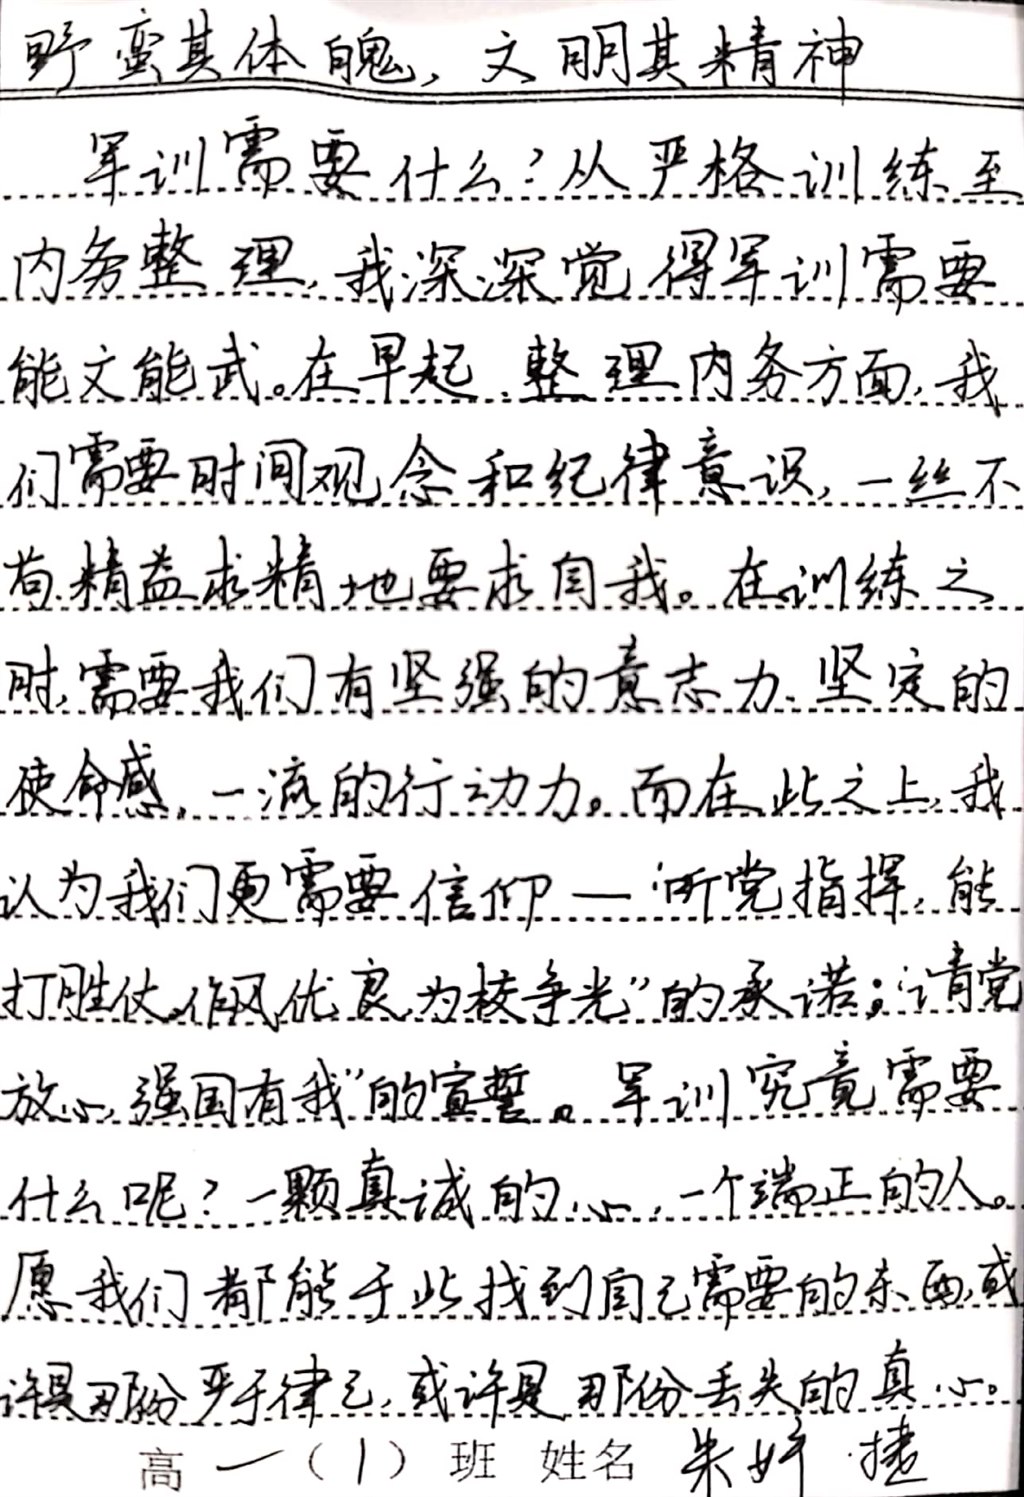 野蛮其体魄，文明其精神
军训需要什么？从严格训练至
内务整理，我深深觉得军训需要
能文能武。在早起、整理内务方面，我
们需要时间观念和纪律意识，一丝不
苟、精益求精地要求自我。在训练之
时，需要我们有坚强的意志力、坚定的
使命感，一流的行动力。而在此之上，我
认为我们更需要信仰—“听党指挥，能
打胜仗，作风优良，为校争光”的承诺；“请党
放心，强国有我”的宣誓。军训究竟需要
什么呢？一颗真诚的心，一个端正的人。
愿我们都能于此找到自己需要的东西，或
许是那份严于律己，或许是那份丢失的真心。
高一（1）班 姓名 朱婷捷